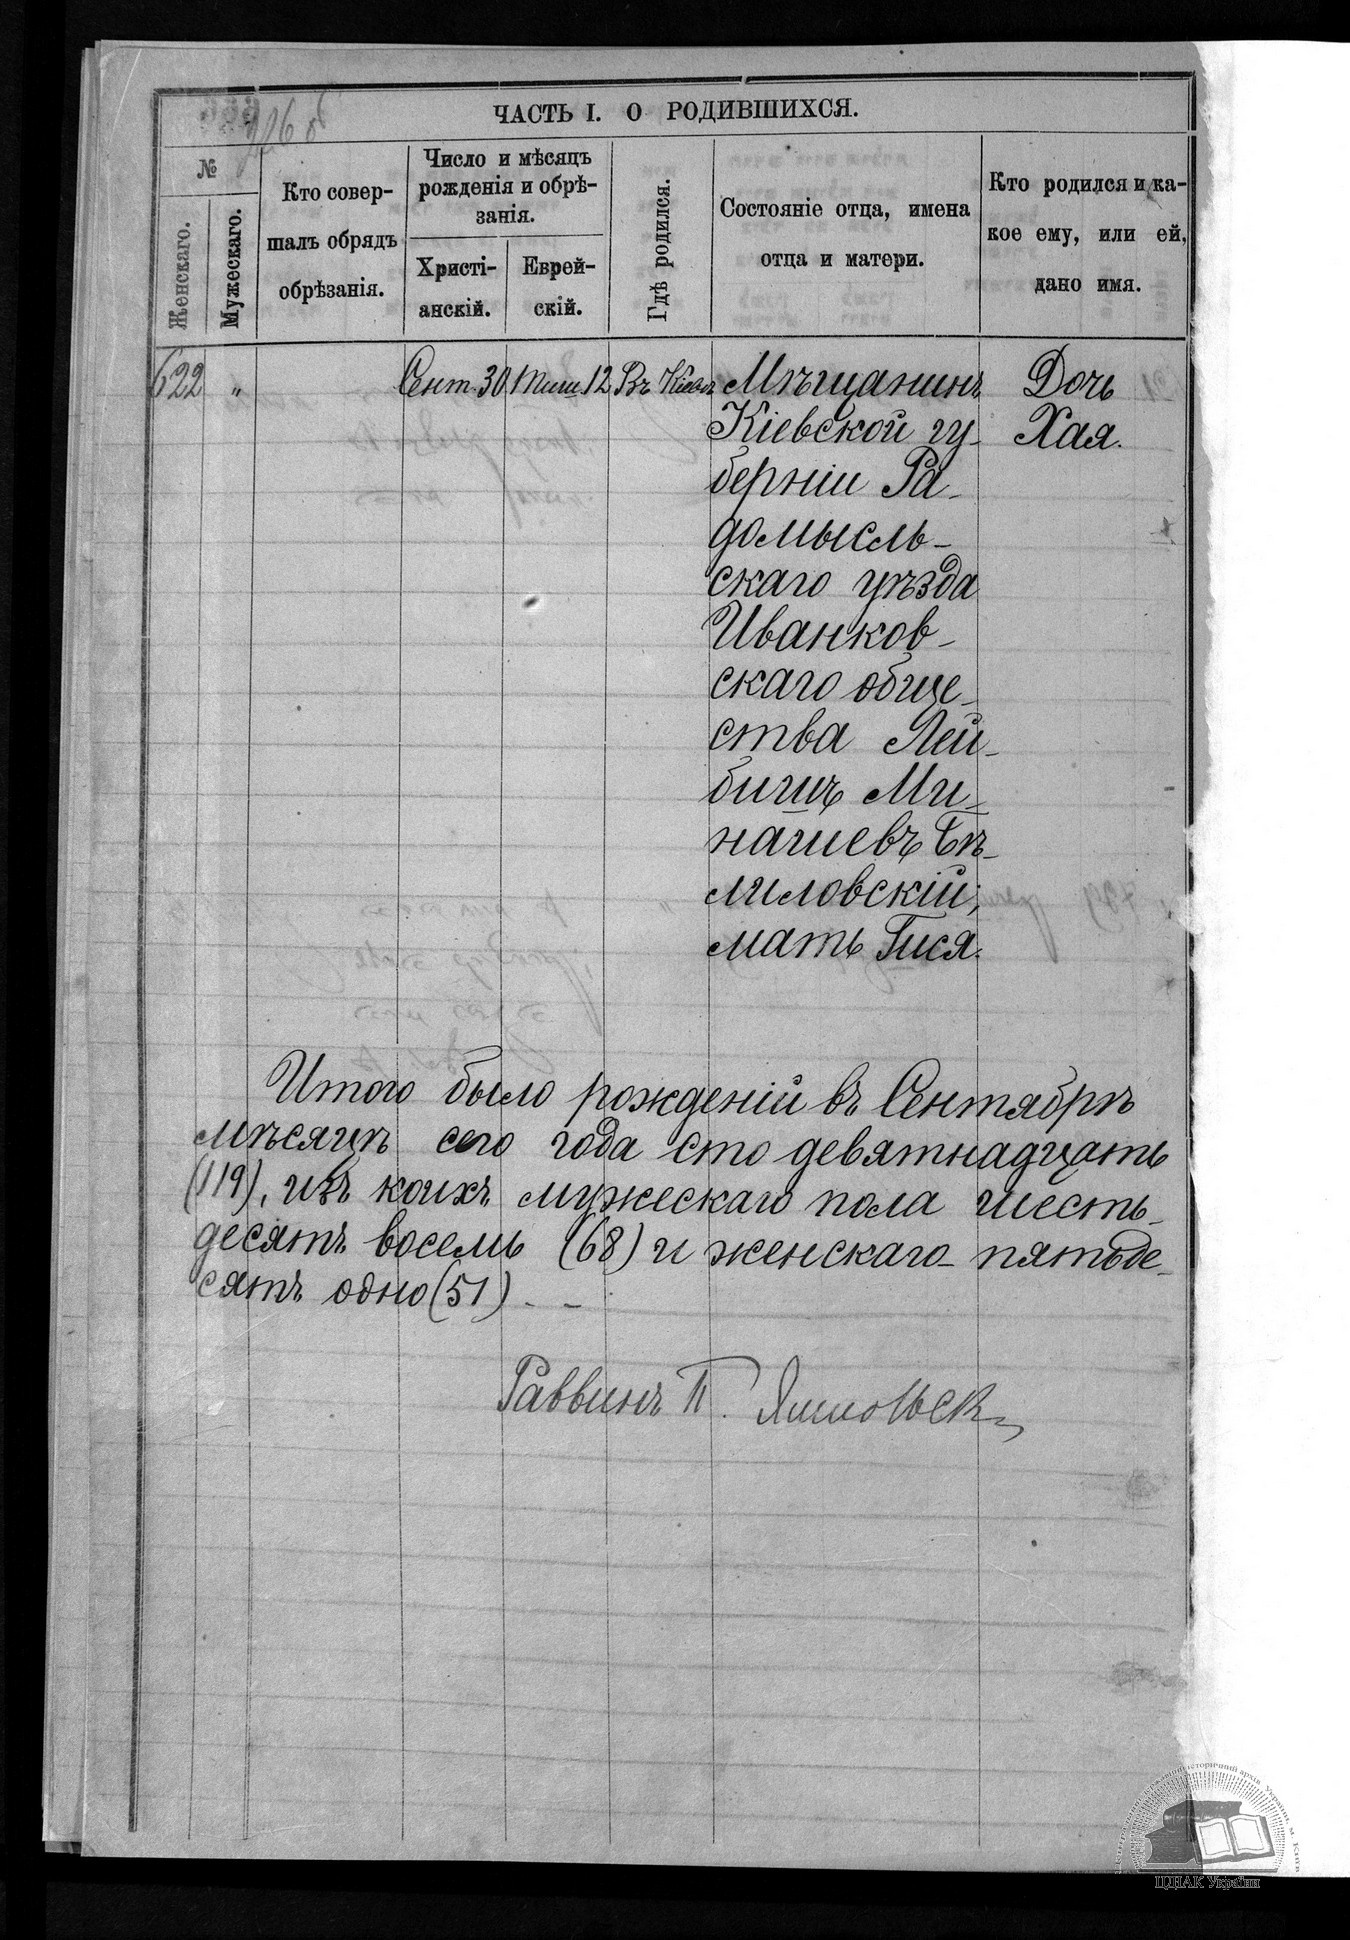 ЧАСТЬ I. О РОДИВШИХСЯ.
№
Женскаго.
Мужескаго.
Кто совер-
шалъ обрядъ
обрѣзанія.
Число и мѣсяцъ
рожденія и обрѣ-
занія.
Христі-
анскій.
Еврей-
скій.
Гдѣ родился.
Состояніе отца, имена
отца и матери.
Кто родился и ка-
кое ему, или ей,
дано имя.
622 " Сент. 30 Тиш. 12 Въ Кіевѣ Мѣщанинъ Дочь
Кіевской гу- Хая.
берніи Ра-
домысль-
скаго уѣзда
Иванков-
скаго обще-
ства Лей-
бишъ Ми-
нашевъ Бѣ-
лиловскій;
мать Гися.
Итого было рожденій въ Сентябрѣ
мѣсяцѣ сего года сто девятнадцать
(119), изъ коихъ мужескаго пола шесть-
десятъ восемь (68) и женскаго пятьде-
сятъ одно (51)
Раввинъ П.
ЦДІАК України